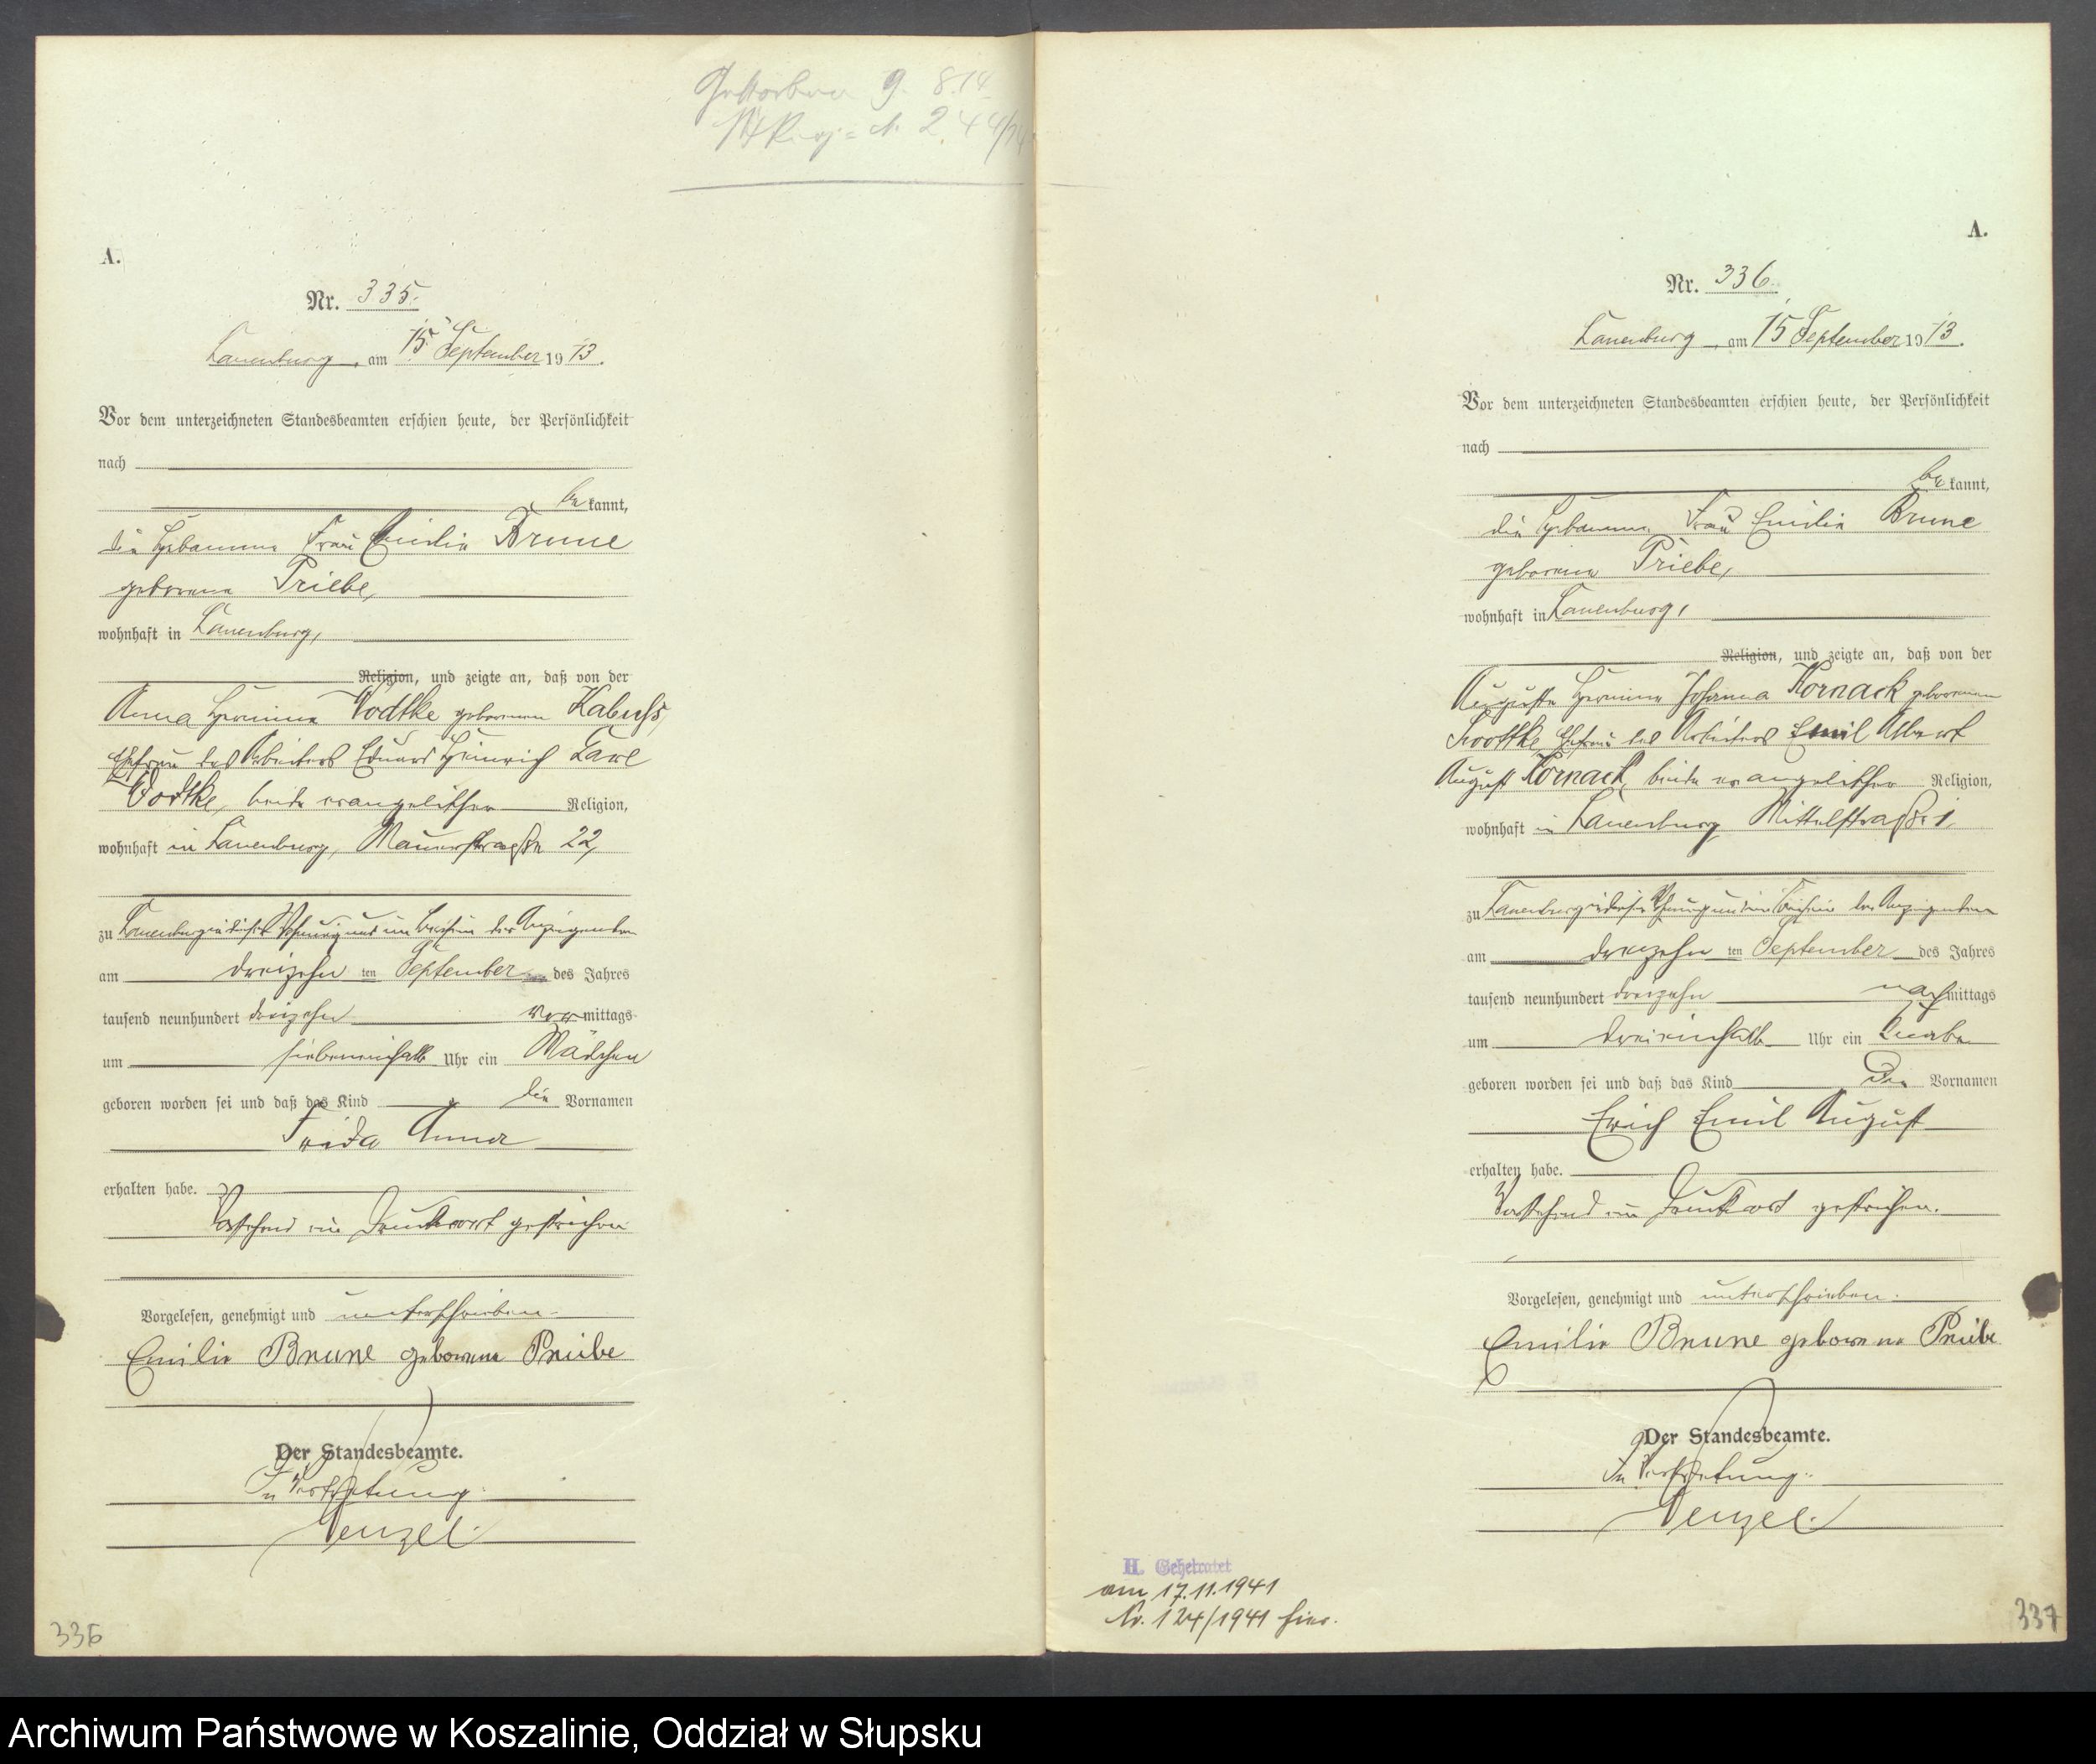 Gestorben 9. 8.14
A.
Nr. 335.
Lauenburg, am 15. September 1913.
Vor dem unterzeichneten Standesbeamten erschien heute, der Persönlichkeit
nach
be kannt,
die Hebamme Frau Emilie Brune
geborene Priebe,
wohnhaft in Lauenburg,
Religion, und zeigte an, daß von der
Anna Hermine Wodtke geborenen Kabuhs,
Ehefrau des Arbeiters Eduard Heinrich Carl
Wodtke, beide evangelischer Religion,
wohnhaft in Lauenburg, Mauerstraße 22,
zu Lauenburg in dieser Wohnung und im Beisein der Anzeigenden
am dreizehn ten September des Jahres
tausend neunhundert dreizehn vor mittags
um siebeneinhalb Uhr ein Mädchen
geboren worden sei und daß das Kind die Vornamen
Frida Anna
erhalten habe.
Vorstehend ein Druckwort gestrichen
Vorgelesen, genehmigt und unterschrieben.
Emilie Brune geborene Priebe
Der Standesbeamte.
In Vertretung:
Wenzel.
336
A.
Nr. 336.
Lauenburg, am 15. September 1913.
Vor dem unterzeichneten Standesbeamten erschien heute, der Persönlichkeit
nach
be kannt,
die Hebamme Frau Emilie Brune
geborene Priebe,
wohnhaft in Lauenburg,
Religion, und zeigte an, daß von der
Auguste Hermine Johanna Kornack geborenen
Ehefrau des Arbeiters Emil Albert
August Kornack, beide evangelischer Religion,
wohnhaft in Lauenburg, Mittelstraße 1,
zu Lauenburg in dieser Wohnung und im Beisein der Anzeigenden
am dreizehn ten September des Jahres
tausend neunhundert dreizehn nach mittags
um dreieinhalb Uhr ein Knabe
geboren worden sei und daß das Kind die Vornamen
Erich Emil August
erhalten habe.
Vorstehend ein Druckwort gestrichen.
Vorgelesen, genehmigt und unterschrieben.
Emilie Brune geborene Priebe
Der Standesbeamte.
In Vertretung:
Wenzel.
H. Geheiratet
am 17.11.1941
Nr. 124/1941 hier.
337
Archiwum Państwowe w Koszalinie, Oddział w Słupsku